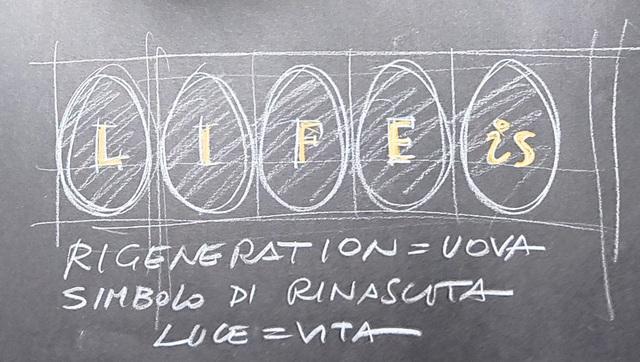 LIFE is
RIGENERATION = UOVA
SIMBOLO DI RINASCITA
LUCE = VITA